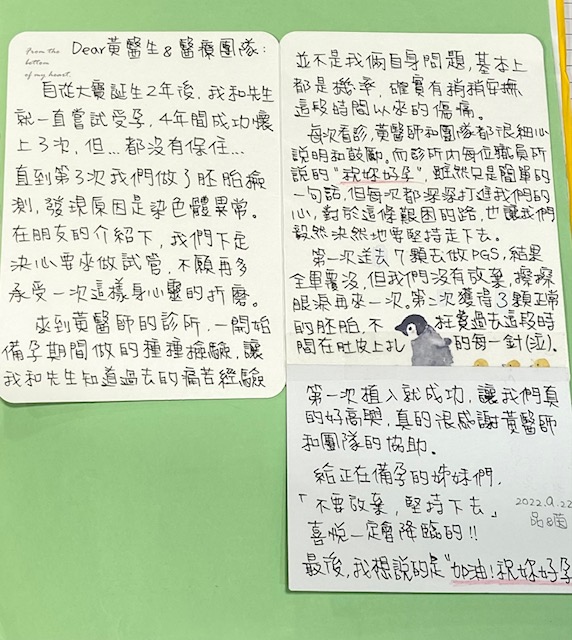 From the
bottom
of my heart
Dear黃醫生&醫療團隊:
自從大寶誕生2年後,我和先生
就一直嘗試受孕,4年間成功懷
上3次,但...都沒有保住...
直到第3次我們做了胚胎檢
測,發現原因是染色體異常。
在朋友的介紹下,我們下定
決心要來做試管,不願再多
承受一次這樣身心靈的折磨。
來到黃醫師的診所,一開始
備孕期間做的種種檢驗,讓
我和先生知道過去的痛苦經驗
並不是我倆自身問題,基本上
都是機率,確實有稍稍安撫
這段時間以來的傷痛。
每次看診,黃醫師和團隊都很細心
說明和鼓勵。而診所內每位職員所
說的"祝妳好孕",雖然只是簡單的
一句話,但每次都深深打進我們的
心,對於這條艱困的路,也讓我們
毅然決然地要堅持走下去。
第一次送去7顆去做PGS,結果
全軍覆沒,但我們沒有放棄,擦擦
眼淚再來一次。第二次獲得3顆正常
的胚胎,不枉費過去這段時
間在肚皮上扎的每一針(泣).
第一次植入就成功,讓我們真
的好高興,真的很感謝黃醫師
和團隊的協助。
給正在備孕的姊妹們,
「不要放棄,堅持下去」
喜悅一定會降臨的!!
2022.9.22
品&茵
最後,我想說的是"加油!祝妳好孕